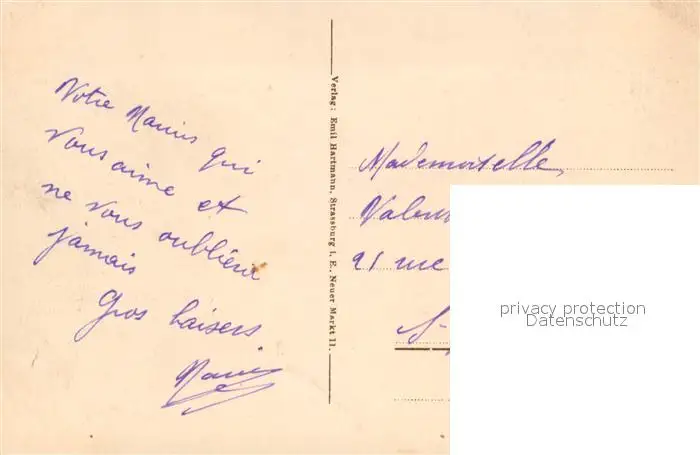 Votre Marius qui
vous aime et
ne vous oubliera
jamais
Gros baisers
Marius
Verlag: Emil Hartmann, Strassburg i. E., Neuer Markt 11.
Mademoiselle
Valen
21 rue
privacy protection
Datenschutz